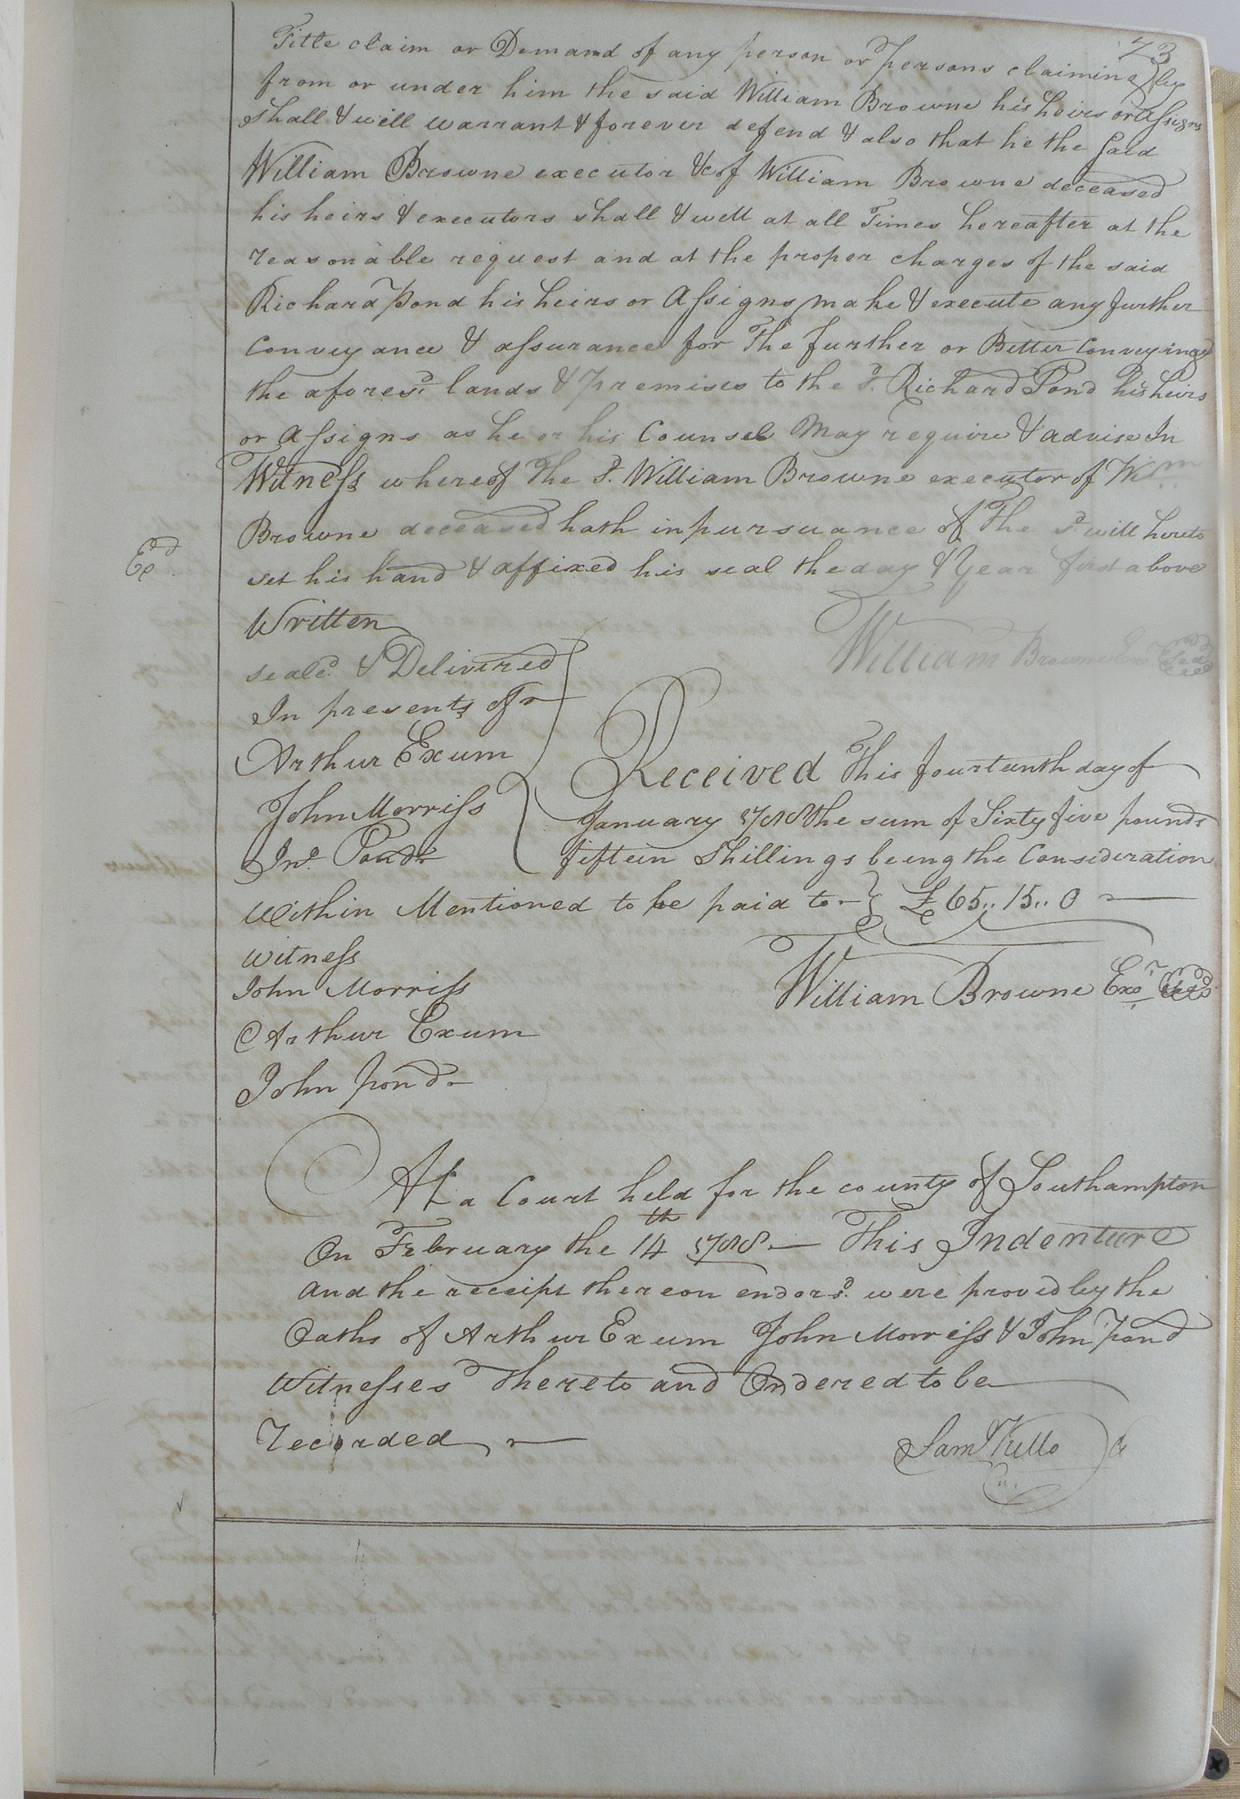 73
Title claim or Demand of any person or persons claiming by
from or under him the said William Browne his heirs or assigns
shall & will warrant & forever defend & also that he the said
William Browne executor &c of William Browne deceased
his heirs & executors shall & will at all Times hereafter at the
reasonable request and at the proper charges of the said
Richard Pond his heirs or Assigns make & execute any further
Conveyance & assurance for The further or Better Conveying
the afores.d lands & Premises to the s.d Richard Pond his heirs
or Assigns as he or his Counsel May require & advise In
Witness whereof The s.d William Browne executor of Wm
Browne deceased hath in pursuance of The s.d will hereto
set his hand & affixed his seal the day & Year first above
Written
William Browne Exr Seal
Ex.d
seal.d & Delivered
In presents of
Arthur Exum
John Morriss
Jn.o Pond
Received This fourteenth day of
January 1788 the sum of Sixty five pounds
fifteen Shillings being the Consideration
Within Mentioned to be paid to £65..15..0
Witness
John Morriss
Arthur Exum
John pond
William Browne Exo.r Seal
At a Court held for the county of Southampton
On February the 14th 1788 This Indenture
and the receipt thereon endors.d were proved by the
Oaths of Arthur Exum John Morriss & John Pond
Witnesses Thereto and Ordered to be
recorded
Sam Kello C